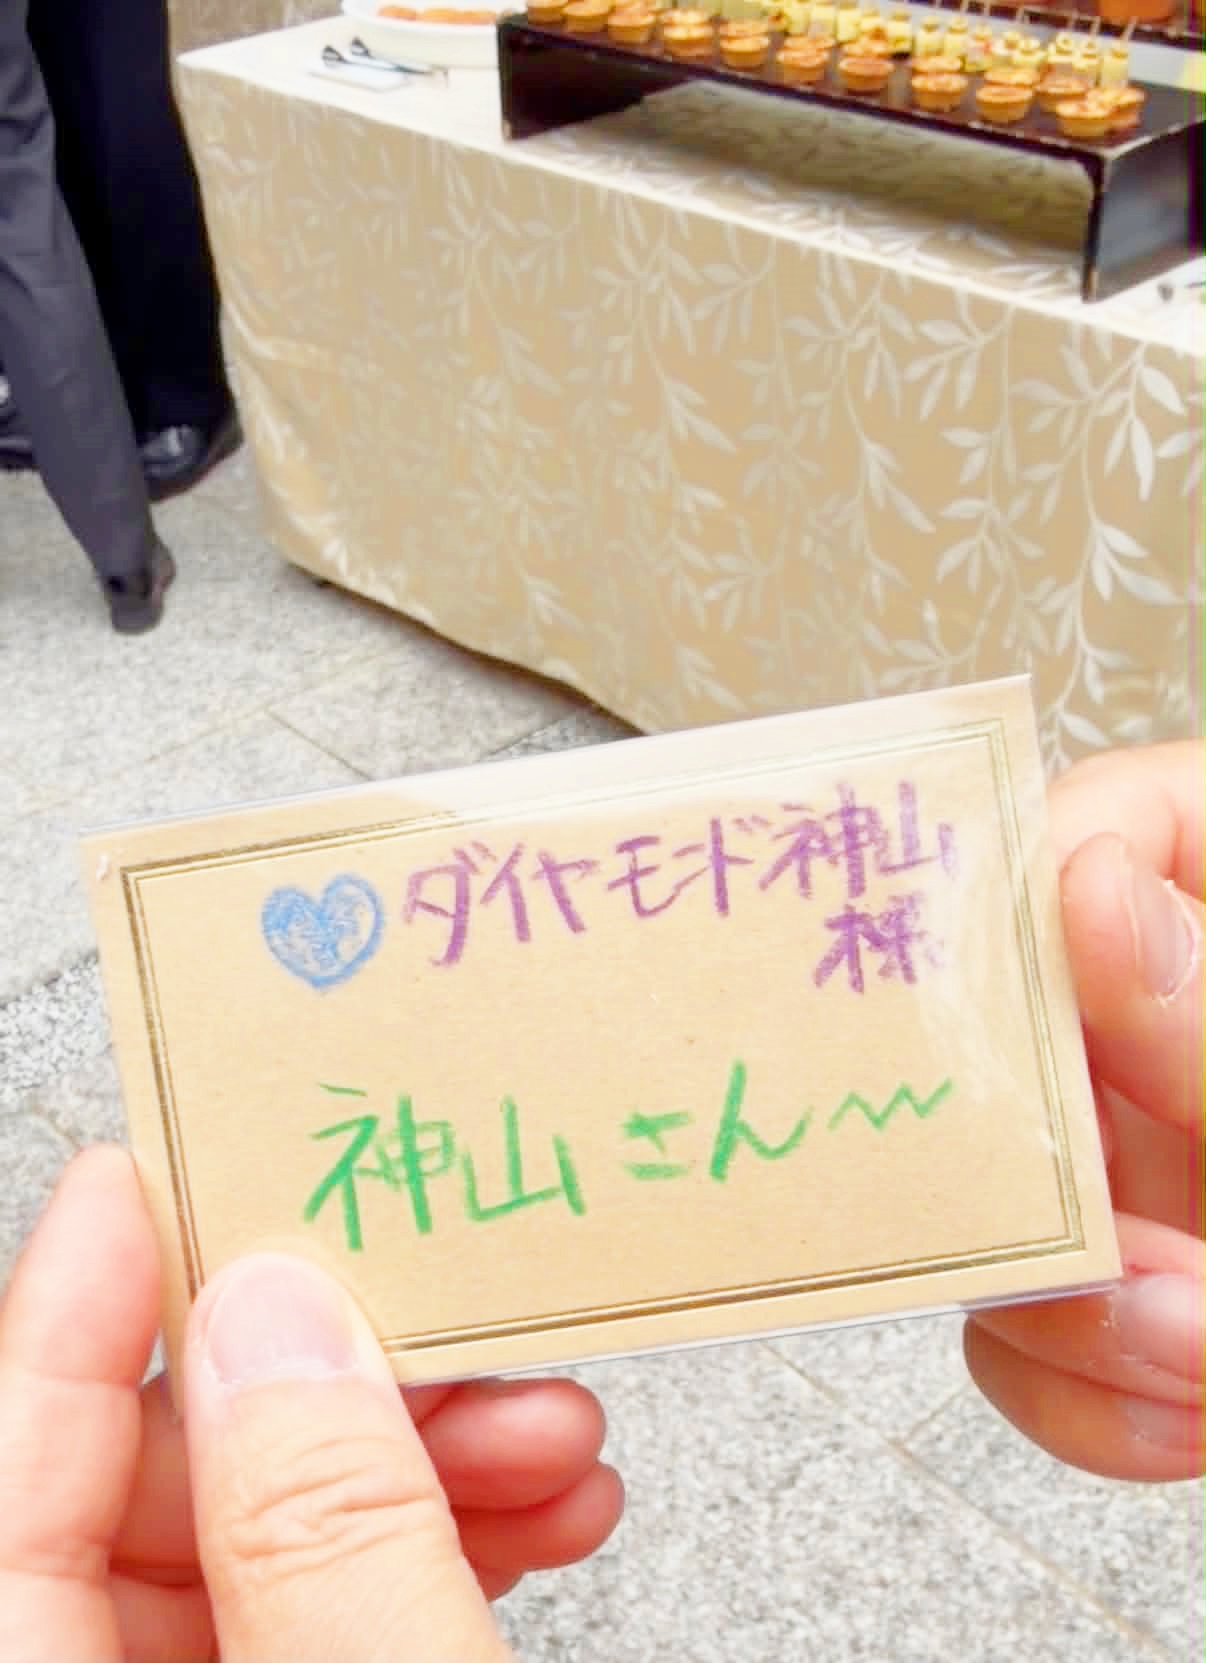 ダイヤモンド神山
様
神山さん〰